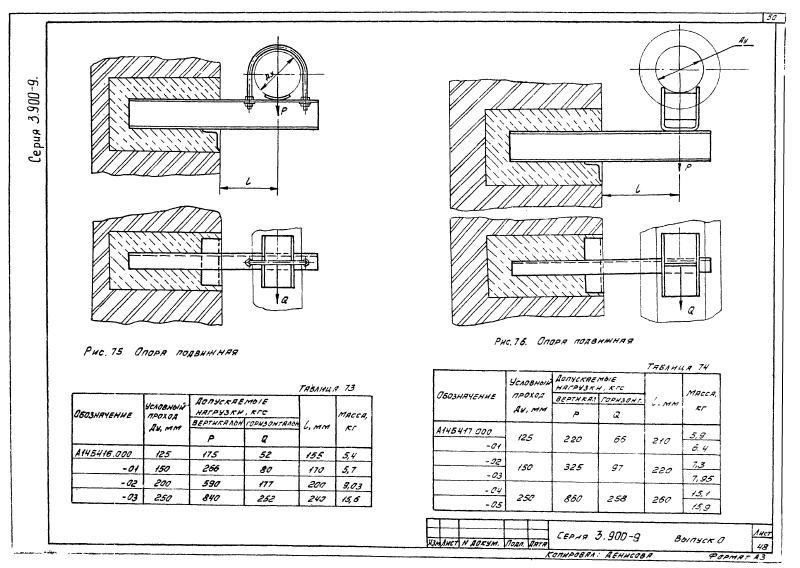 50
Серия 3.900-9.
Ду
P
l
Q
Рис. 75 Опора подвижная
Ду
P
l
Q
Рис. 76. Опора подвижная
Таблица 73
Обозначение Условный проход Ду, мм Допускаемые нагрузки, кгс l, мм Масса, кг
вертикальн горизонтальн
P Q
А14Б416.000 125 175 52 155 5,4
-01 150 266 80 170 5,7
-02 200 590 177 200 9,03
-03 250 840 252 240 15,6
Таблица 74
Обозначение Условный проход Ду, мм Допускаемые нагрузки, кгс l, мм Масса, кг
вертикал горизонт.
P Q
А14Б417.000 125 220 66 210 5,9
-01 6.4
-02 150 325 97 220 7,3
-03 7,95
-04 250 860 258 260 15,1
-05 15,9
Изм Лист N докум. Подп. Дата
Серия 3.900-9 Выпуск 0
Лист
48
Копировал: Денисова Формат А3